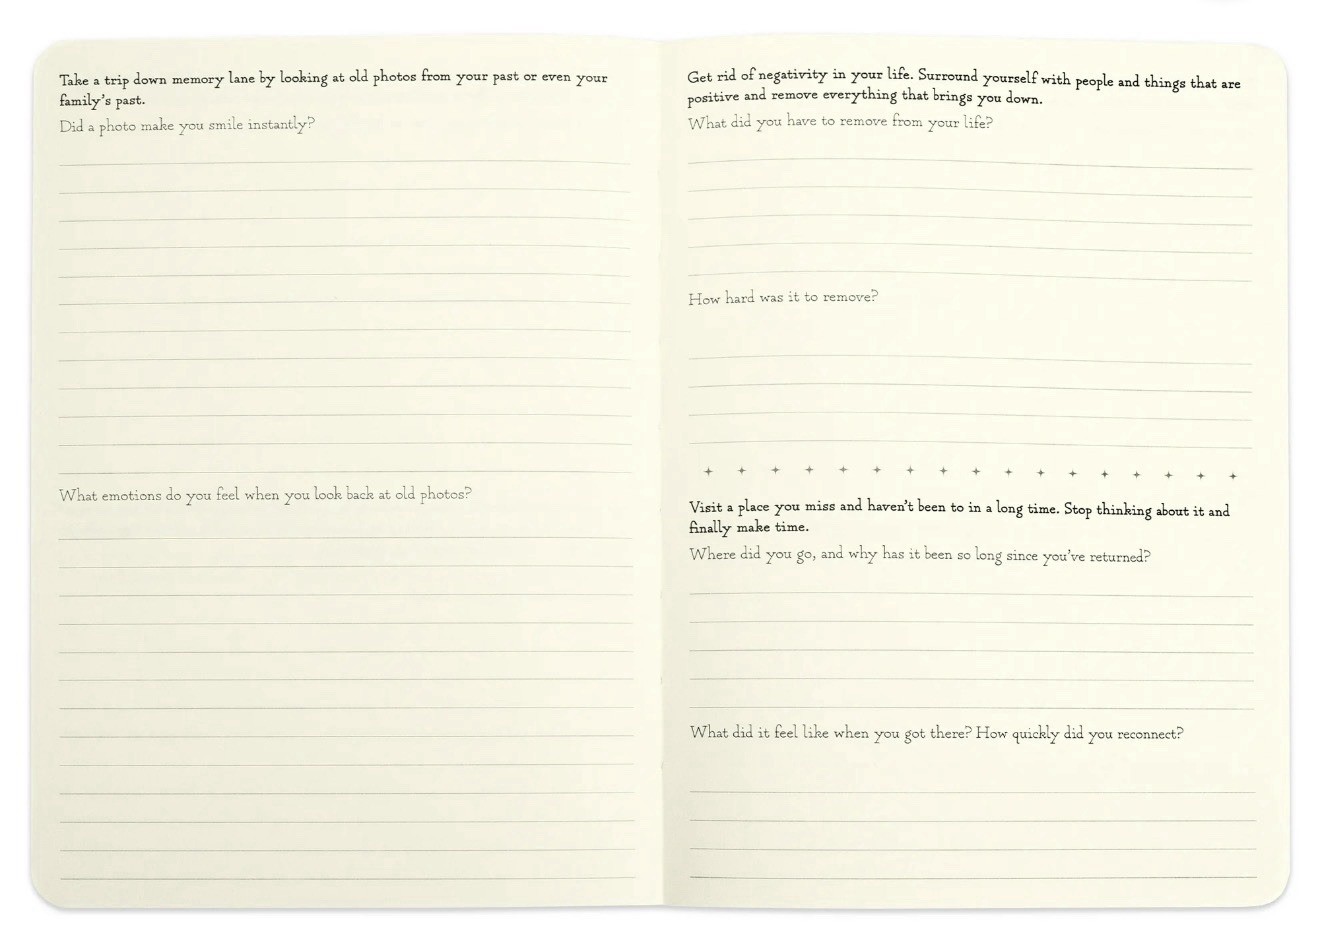 Take a trip down memory lane by looking at old photos from your past or even your
family's past.
Did a photo make you smile instantly?
What emotions do you feel when you look back at old photos?
Get rid of negativity in your life. Surround yourself with people and things that are
positive and remove everything that brings you down.
What did you have to remove from your life?
How hard was it to remove?
Visit a place you miss and haven't been to in a long time. Stop thinking about it and
finally make time.
Where did you go, and why has it been so long since you've returned?
What did it feel like when you got there? How quickly did you reconnect?